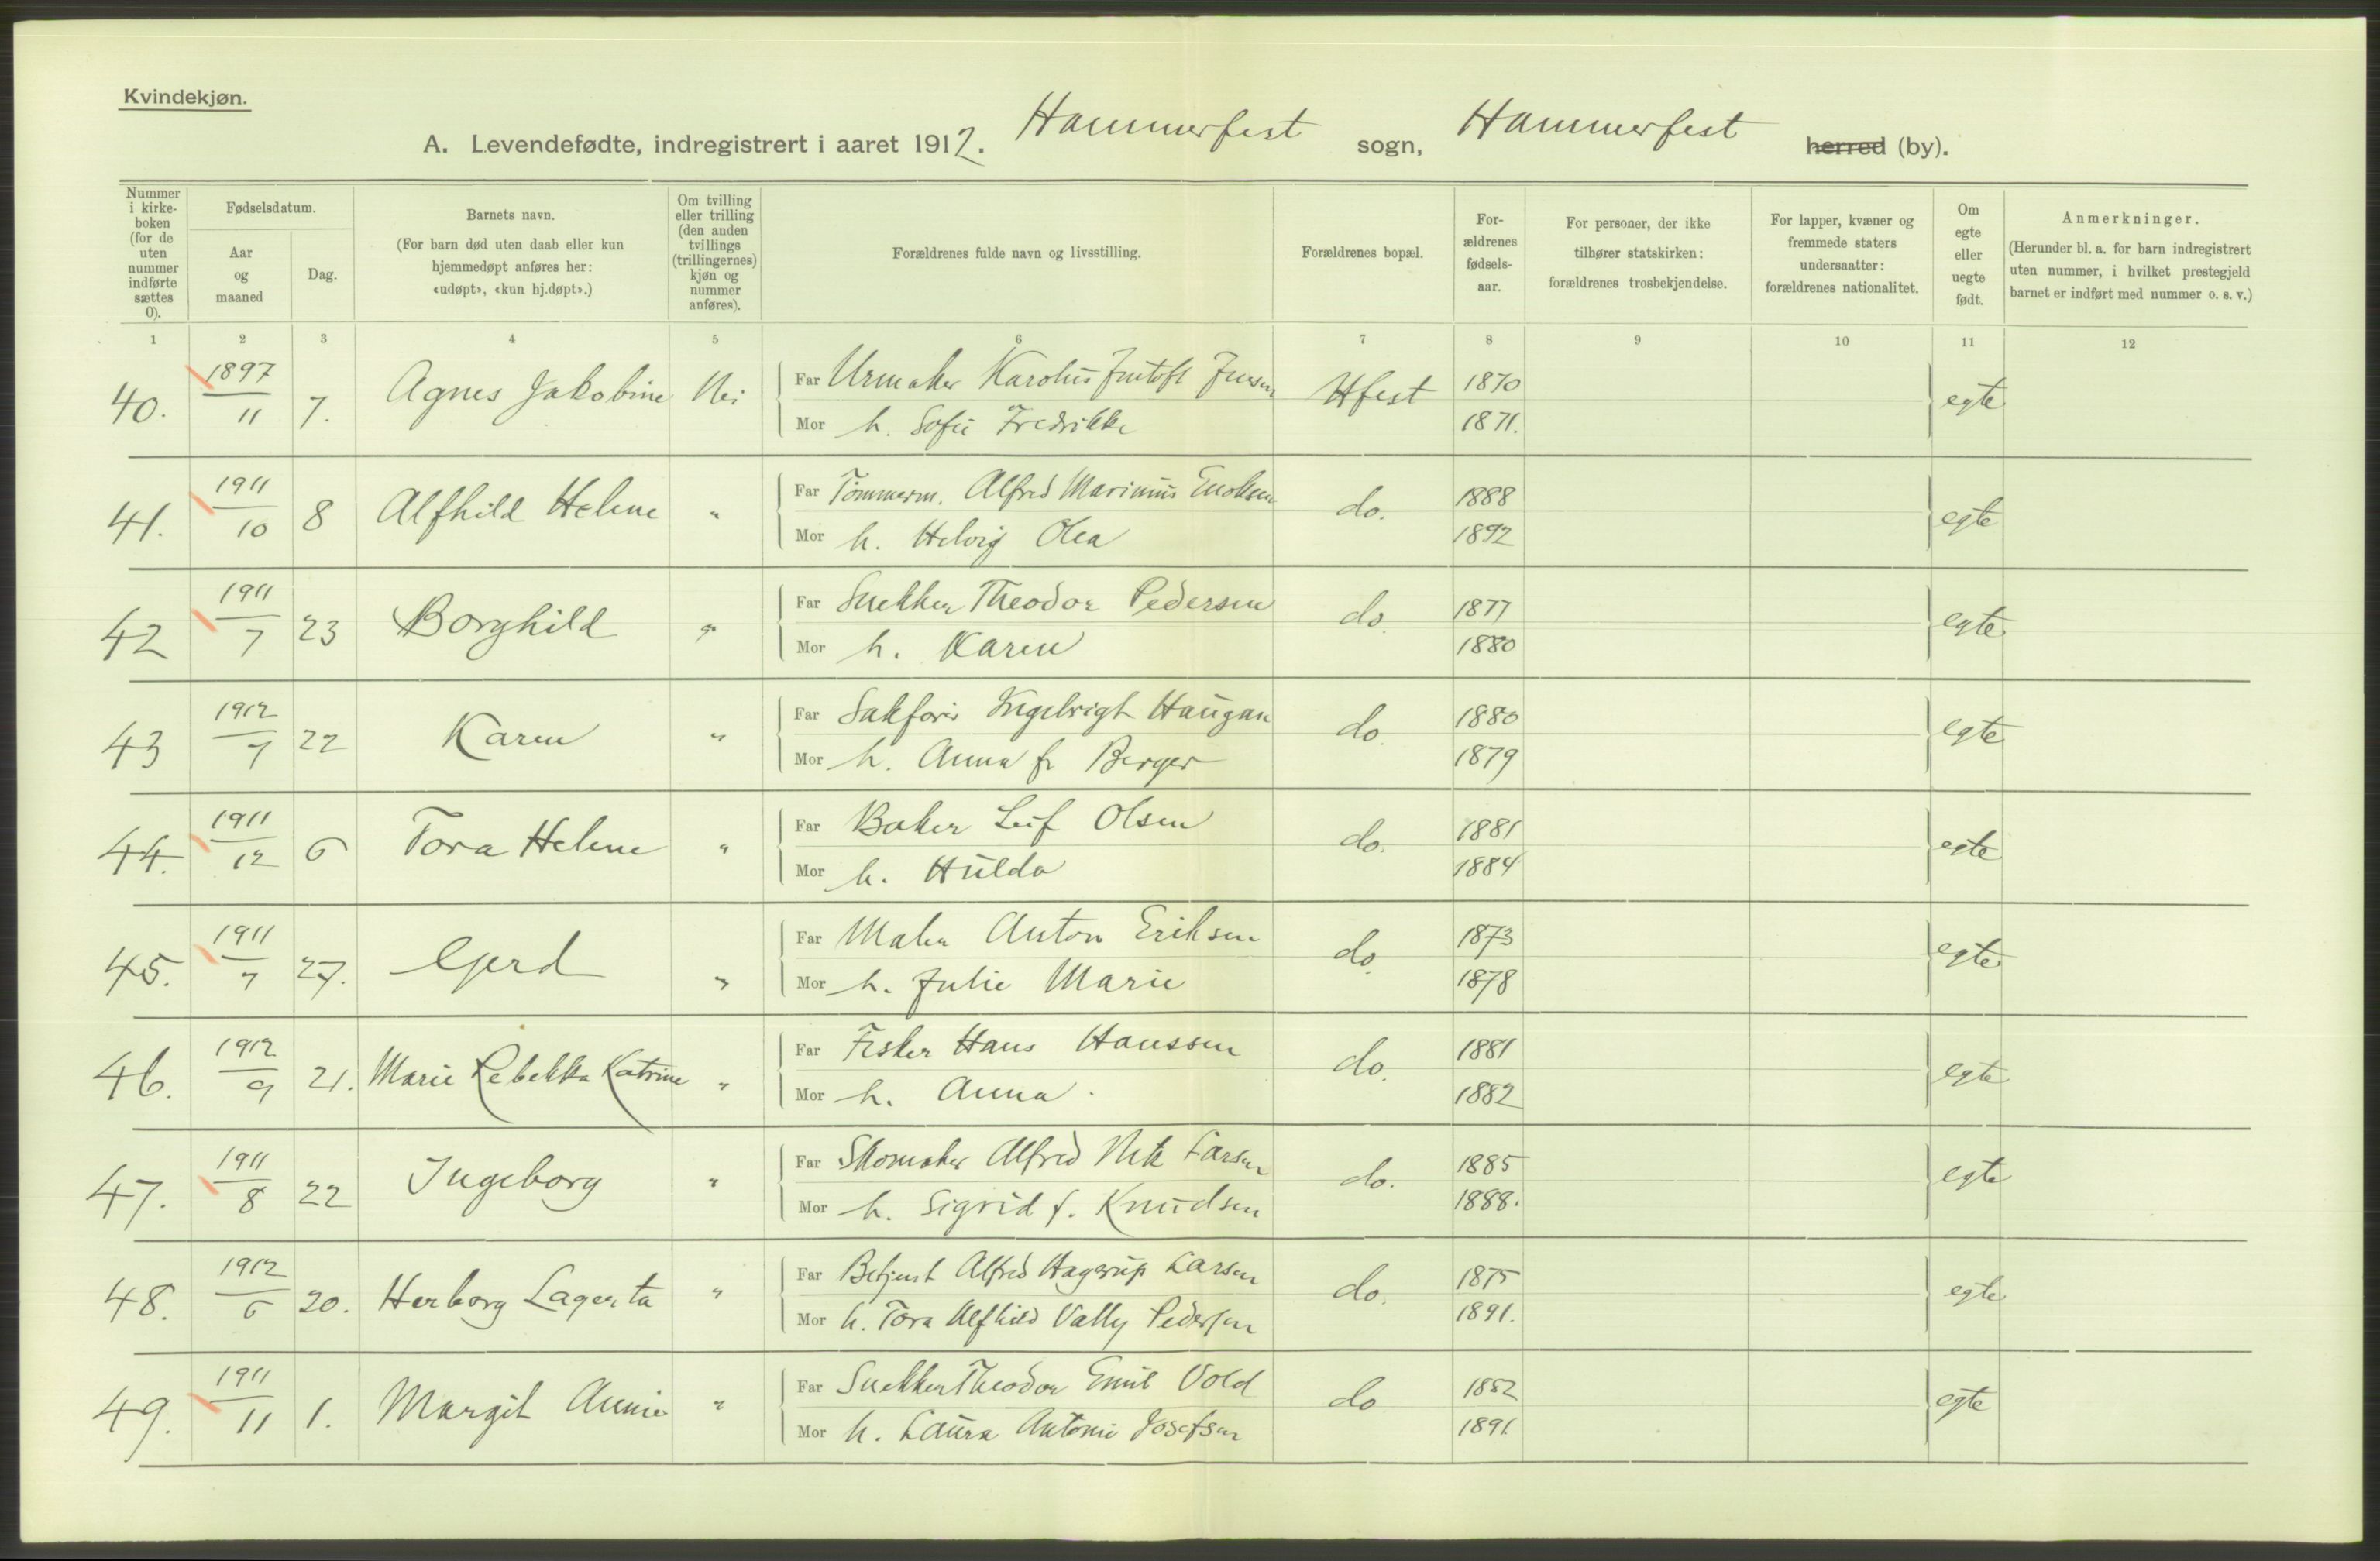 Kvindekjøn.
A. Levendefødte, indregistrert i aaret 1912. Hammerfest sogn, Hammerfest herred (by).
Nummer i kirke-boken (for de uten nummer indførte sættes 0).
Fødselsdatum.
Aar og maaned
Dag.
Barnets navn.
(For barn død uten daab eller kun hjemmedøpt anføres her: «udøpt», «kun hj.døpt».)
Om tvilling eller trilling (den anden tvillings (trillingernes) kjøn og nummer anføres).
Forældrenes fulde navn og livsstilling.
Forældrenes bopæl.
For-ældrenes fødsels-aar.
For personer, der ikke tilhører statskirken: forældrenes trosbekjendelse.
For lapper, kvæner og fremmede staters undersaatter: forældrenes nationalitet.
Om egte eller uegte født.
Anmerkninger.
(Herunder bl. a. for barn indregistrert uten nummer, i hvilket prestegjeld barnet er indført med nummer o. s. v.)
1 2 3 4 5 6 7 8 9 10 11 12
40. 1897/11 7. Agnes Jakobine Nei Far Urmaker Karolus Jensen Hfest 1870 egte
Mor h. Sofie Fredrikke 1871.
41. 1911/10 8 Alfhild Helene " Far Tømmerm. Alfred Marinius Enoksen do. 1888 egte
Mor h. Helvig Olea 1892
42 1911/7 23 Borghild " Far Snekker Theodor Pedersen do. 1877 egte
Mor h. Karen 1880
43 1912/7 22 Karen " Far Sakfører Ingebrigt Haugan do. 1880 egte
Mor h. Anna f. Berger 1879
44. 1911/12 6 Tora Helene " Far Baker Leif Olsen do. 1881 egte
Mor h. Hulda 1884
45. 1911/7 27. Gerd " Far Maler Anton Eriksen do. 1873 egte
Mor h. Julie Marie 1878
46. 1912/9 21. Marie Rebekka Katrine " Far Fisker Hans Hanssen do. 1881 egte
Mor h. Anna 1882
47. 1911/8 22 Ingeborg " Far Skomaker Alfred Larsen do. 1885 egte
Mor h. Sigrid f. Knudsen 1888.
48. 1912/6 20. Herborg Lagerta " Far Betjent Alfred Hagerup Larsen do. 1875 egte
Mor h. Tora Alfhild Vally Pedersen 1891.
49. 1911/11 1. Margit Annie " Far Snekker Theodor Emil Vold do 1882 egte
Mor h. Laura Antonie Josefsen 1891.